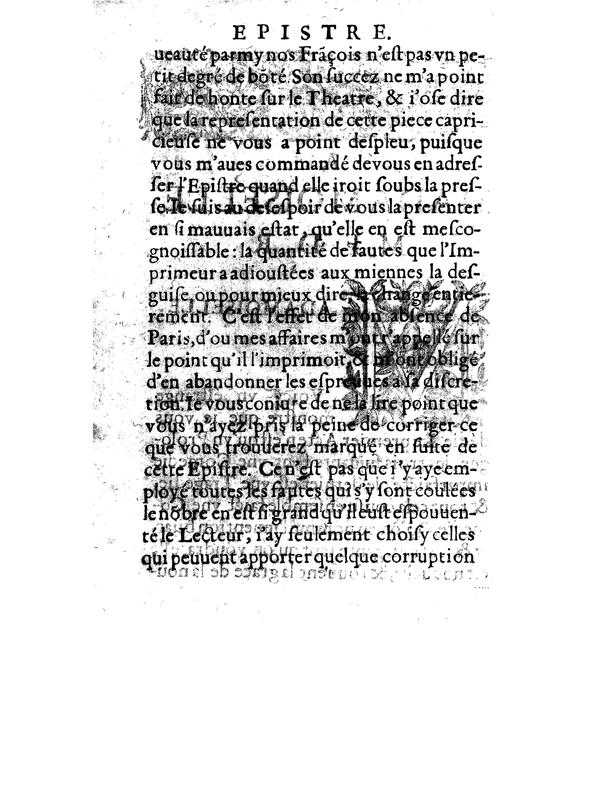 EPISTRE.
ueauté parmy nos Frãçois n'eſt pas vn pe-
tit degré de bõté. Son ſuccez ne m'a point
fait de honte ſur le Theatre, & i'oſe dire
que la repreſentation de cette piece capri-
cieuſe ne vous a point deſpleu, puiſque
vous m'aues commandé de vous en adreſ-
ſer l'Epiſtre quand elle iroit ſoubs la preſ-
ſe. Ie ſuis au deſeſpoir de vous la preſenter
en ſi mauuais eſtat, qu'elle en eſt meſco-
gnoiſſable : la quantité de fautes que l'Im-
primeur a adiouſtées aux miennes la deſ-
guiſe, ou pour mieux dire, la change entie-
rement. C'eſt l'effet de mon abſence de
Paris, d'ou mes affaires m'ont r'appellé ſur
le point qu'il l'imprimoit, & m'ont obligé
d'en abandonner les eſpreuues a ſa diſcre-
tion. Ie vous coniure de ne la lire point que
vous n'ayez pris la peine de corriger ce
que vous trouuerez marqué en ſuite de
cette Epiſtre. Ce n'eſt pas que i'y aye em-
ployé toutes les fautes qui s'y ſont coulées
le nõbre en eſt ſi grand qu'il eust eſpouuen-
té le Lecteur, i'ay ſeulement choiſy celles
qui peuuent apporter quelque corruption